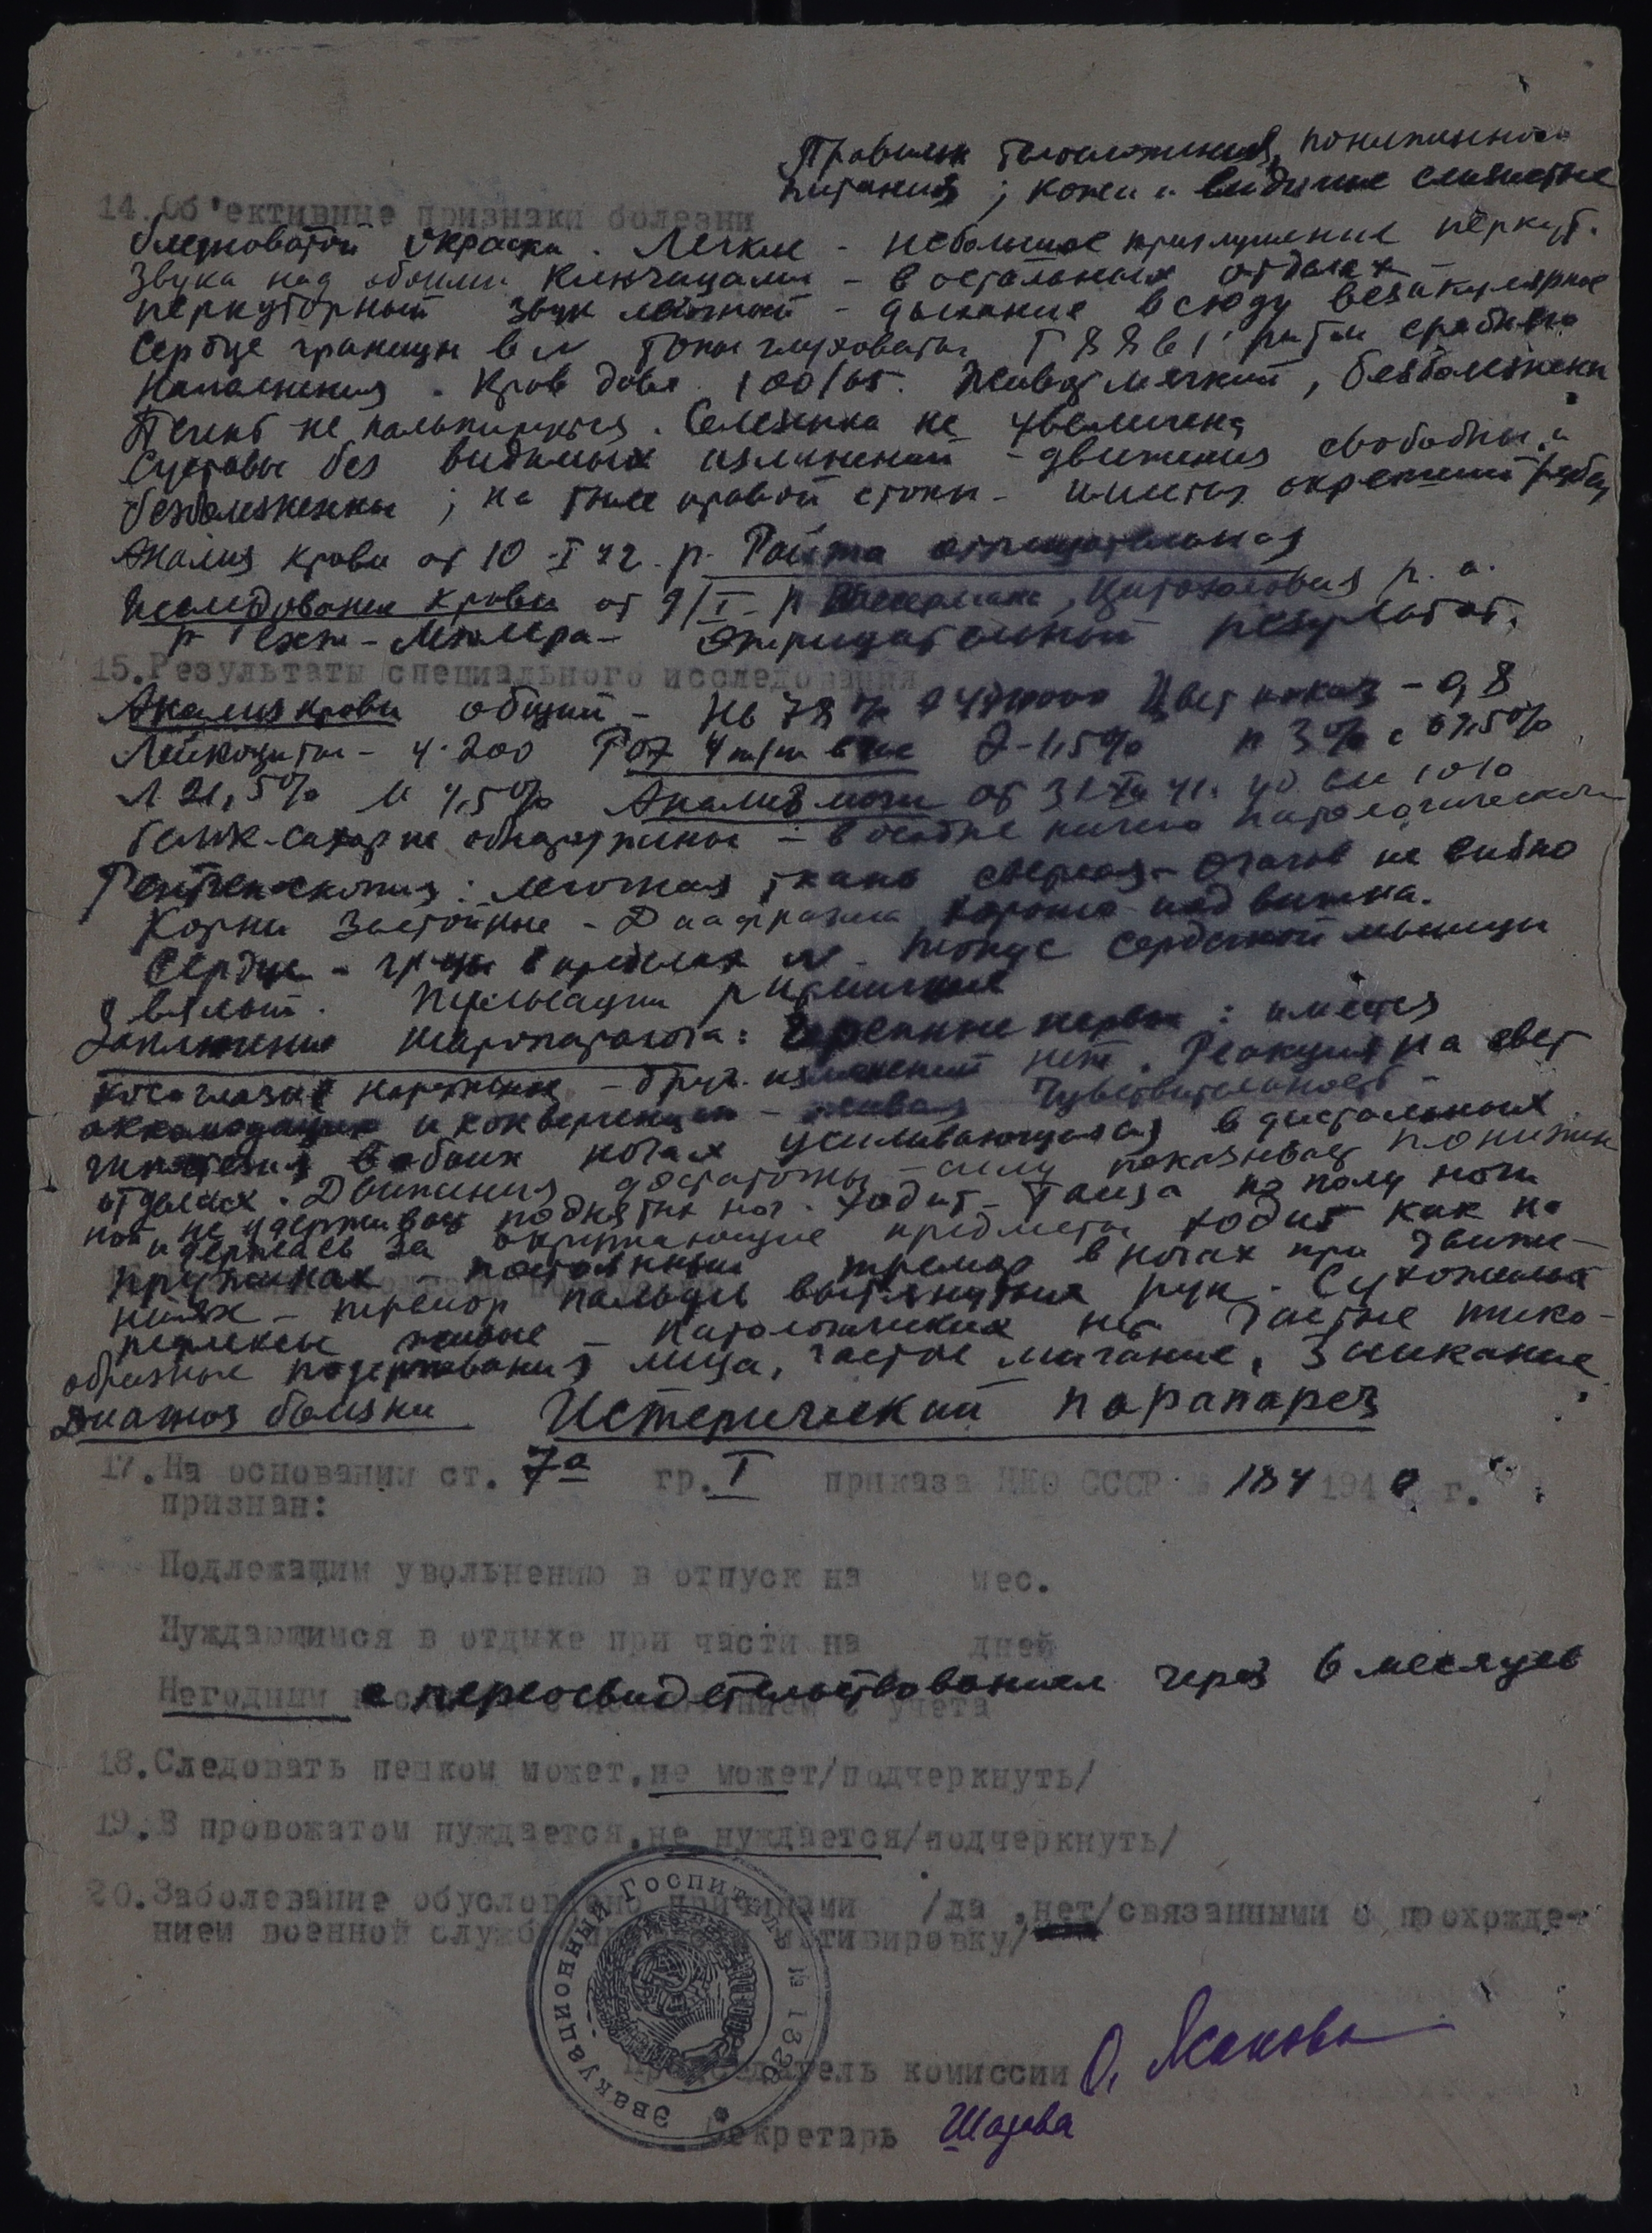 Правильн телосложения, пониженного
питания ; кожи и видимые слизистые
14.Об'ективные признаки болезни
бледноватой окраски . Легкие - небольшое приглушение перкут.
звука над обоими ключицами - в остальных отделах
перкуторный звук ясный - дыхание всюду везикулярное
Сердце границы в N тоны глуховаты 88 в 1' ритм
наполнения . Кров давл 100/65. Живот мягкий, безболезнен
Печень не пальпируется . Селезенка не увеличена
Суставы без видимых изменений - движения свободны и
безболезненны ; на тыле правой стопы - имеется окрепший рубец
Анализ крови от 10 -I 42. р. Райта отрицательная
Исследование крови от 9/I - р Вассермана, Цитохолевая р. а.
р - Мюллера - отрицательный результат.
15.Результаты специального исследования
Анализ крови общий - Нв 78 % Цвет показ - 0,8
Лейкоциты - 4.200 РОЭ 4 m/m в час Э-1,5% п 3% с 67,5%
Л 21,5% М 4,5% Анализ мочи от 31 XII 41. 40 см 1010
белок-сахар не обнаружены - в осадке ничего патологическ
Рентгеноскопия : легочная ткань светлая - очагов не видно
Корни застойные - Диафрагма хорошо подвижна.
Сердце - гр-цы в пределах N - тонус сердечной мышцы
вялый. Пульсации ритмичные
Заключение невропатолога: Черепные нервы : имеется
косоглазие наружное - друг. изменений нет. Реакция на свет
аккомодацию и конвергенцию - живая Чувствительность -
гипестезия в обоих ногах усиливающаяся в дистальных
отделах . Движения достаточны - силу показывает пониженн
ной не удерживает поднятых ног . Ходит - таща по полу ноги
и держась за окружающие предметы ходит как на
пружинах - постоянный тремор в ногах при движе-
ниях - тремор пальцев вытянутых рук . Сухожильн
рефлексы живые - патологических нет Частые тико-
образные подергивания лица, частое мигание, Заикание
Диагноз болезни Истерический парапарез
17.На основании ст. 7а гр. I приказа НКО СССР № 184 1940 г.
признан:
Подлежащим увольнению в отпуск на мес.
Нуждающимся в отдыхе при части на дней
Негодным с переосвидетельствованием через 6 месяцев
учета
18.Следовать пешком может,не может/подчеркнуть/
19.В провожатом нуждается,не нуждается/подчеркнуть/
20.Заболевание обусловлено причинами /да ,нет/связанными с прохожде-
нием военной службы мотивировку/
Эвакуационный Госпиталь №
Председатель комиссии
Секретарь Шатова